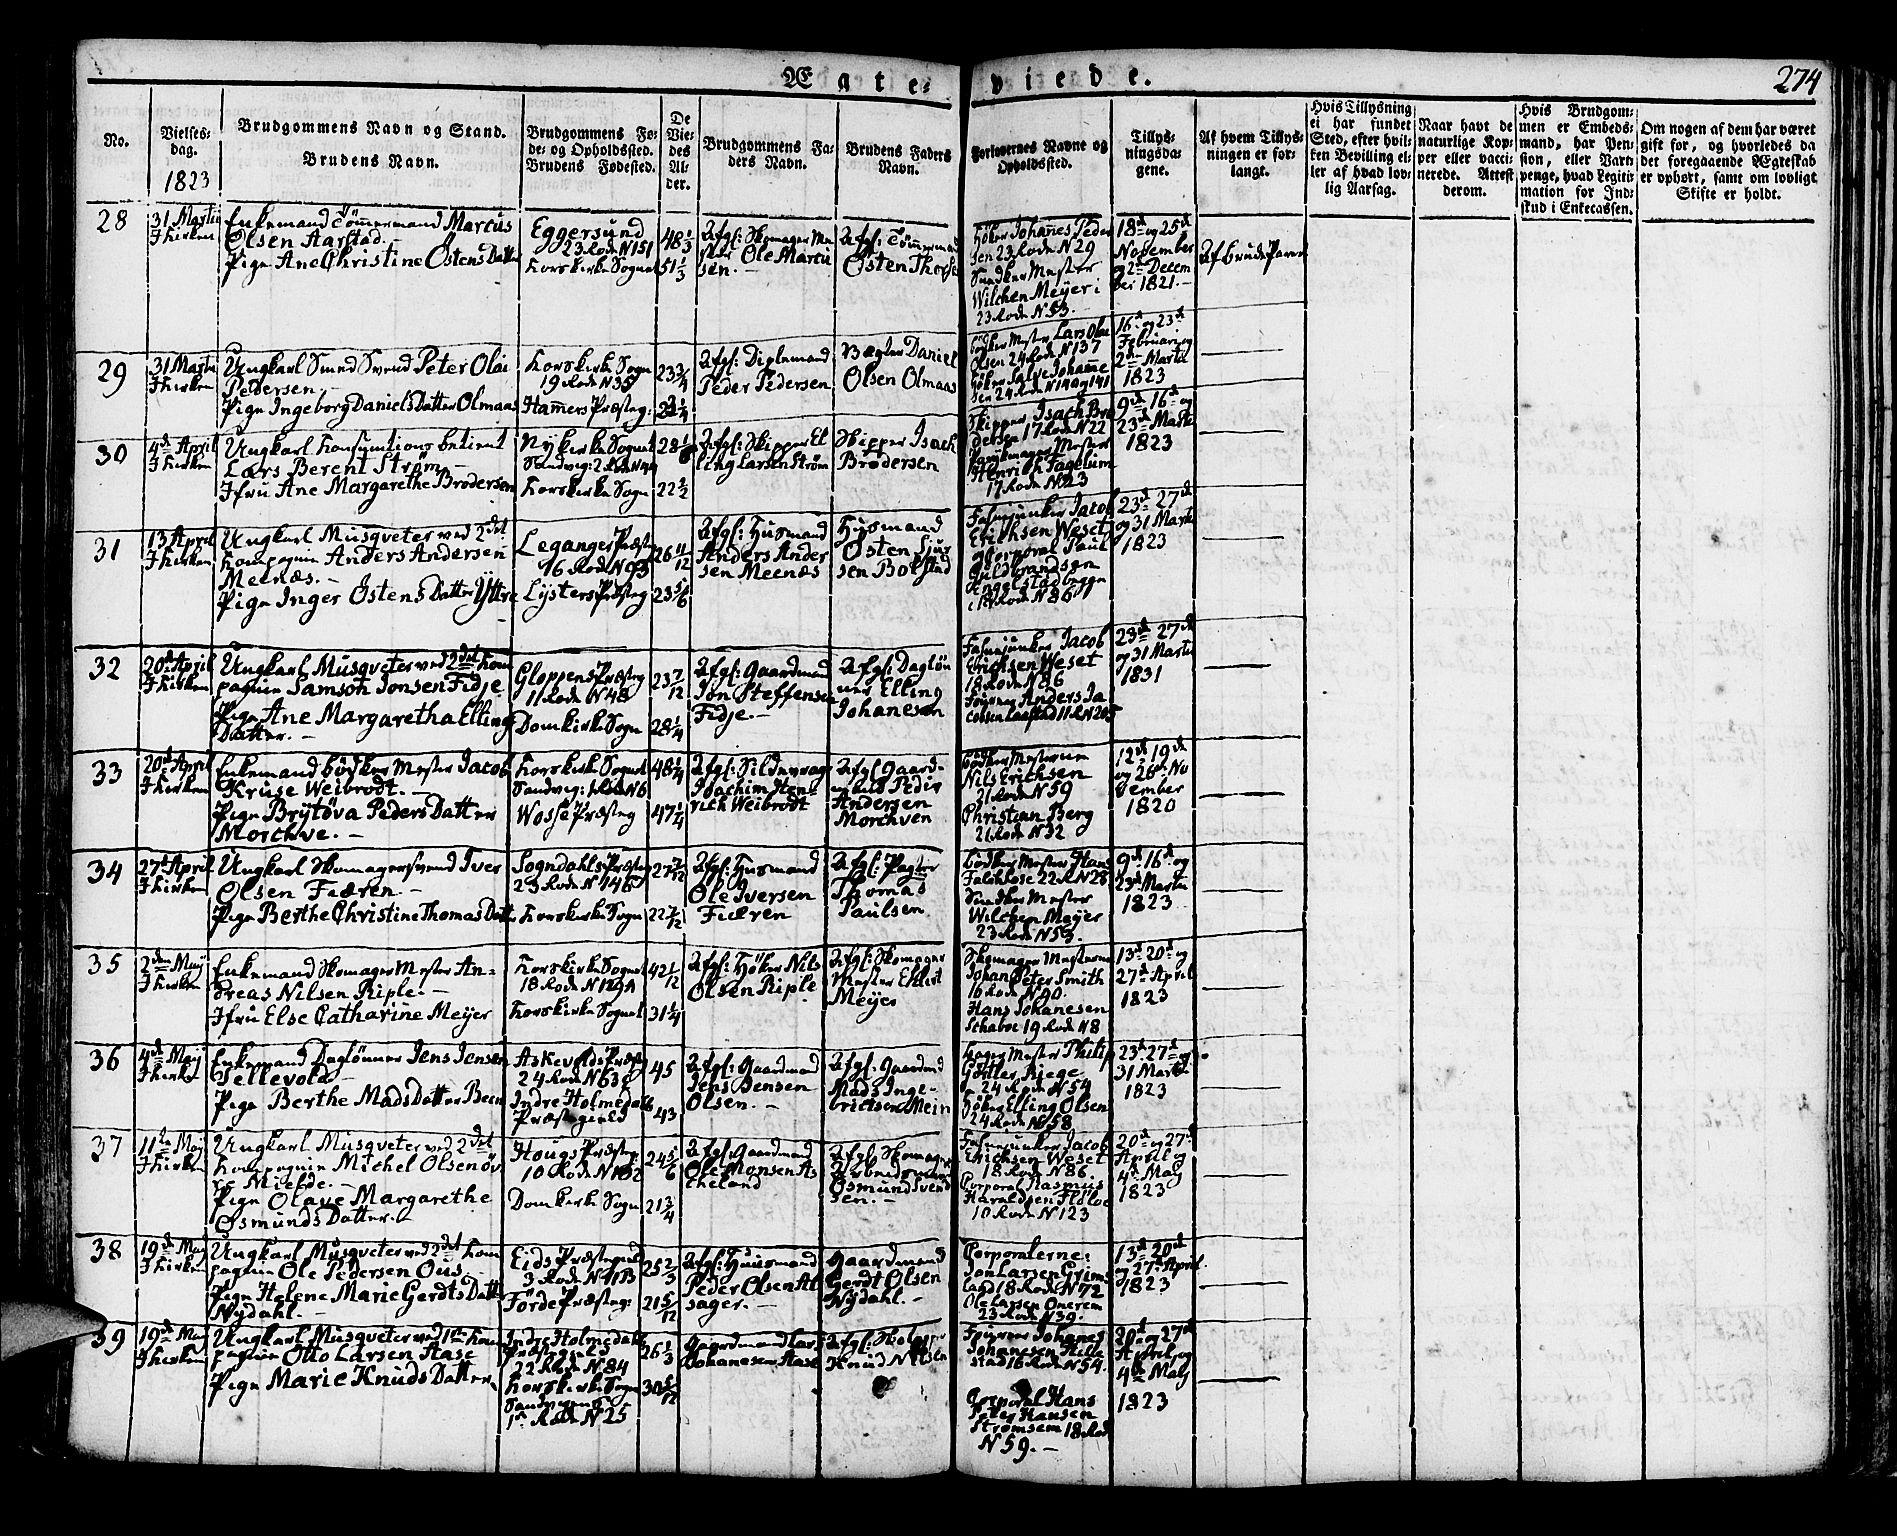 Ægte- viede.
274
No.
Vielses-
dag.
1823
Brudgommens Navn og Stand.
Brudens Navn.
Brudgommens Fø-
de- og Opholdsted.
Brudens Fødested.
De
Vie-
des
Al-
der.
Brudgommens Fa-
ders Navn.
Brudens Faders
Navn.
Forlovernes Navne og
Opholdssted.
Tillys-
ningsda-
gene.
Af hvem Tillys-
ningen er for-
langt.
Hvis Tillysning
ei har fundet
Sted, efter hvil-
ken Bevilling el-
ler af hvad lov-
lig Aarsag.
Naar havt de
naturlige Kop-
per eller vacci-
nerede. Attest
derom.
Hvis Brudgom-
men er Embeds-
mand, har Pen-
sion, eller Vart-
penge, hvad Legiti-
mation for Ind-
skud i Enkecassen.
Om nogen af dem har været
gift før, og hvorledes da
det foregaaende Ægteskab
er ophørt, samt om lovligt
Skifte er holdt.
28
31 Martii
I Kirken
Enkemand Tømmermand Marcus
Olsen Aarstad.
Pige Ane Christine Ostens Datter
Eggersund
23 Rode N 151
Korskirke Sognet
48 1/3
51 1/3
Afgl: Skomager Me
ster Ole Martii
sen.-
Afgl: Tømmermand
Østen Thor
Høker Johanes Peder
sen 23 Rode N 29
Snedker Mester
Wilchen Meÿer i
23 Rode N 53.
18de og 25de
November
og 2den Decem
ber 1821.-
Af Brude Parret
29
31 Martii
I Kirken
Ungkarl Smed Svend Peter Olai
Pedersen.-
Pige Ingeborg Daniels Datter Olmaas
Korskirke Sogn
19 Rode N 35
Hammers Præsteg:
23 3/4
Afgl: Diglemand
Peder Pedersen
Vægter Daniel
Olsen Olmaas
Bødker Mester Lars Olai
Olsen 24 Rode N 137
Høker Salve Johanne
sen 24 Rode N 140 og 141
16de og 23de
Februari og
2den Martii
1823
30
4de April
I Kirken
Ungkarl Konsumtions betient
Lars Berent Strøm -
Jfru Ane Margarethe Brodersen
Nykirke Sognet
Sandvig: 2 Rode N
Korskirke Sogn
28
22 1/2
Afgl: Skipper El
ling Larsen Strøm
Skipper Isach
Brødersen
Skipper Isach Bro
dersen 17 Rode N 22
Mester
Henrich Fagelum
17 Rode N 23
9de 16de og
23de Martii
1823
31
13 April
I Kirken
Ungkarl Musqveter ved 2det
Kompagnie Anders Andersen
Meenæs.-
Pige Inger Ostens Datter Yttre
Leganger Præsteg
16 Rode N 93
Lysters Præsteg
26 11/12
23 5/6
Afgl: Husmand
Anders Ander
sen Meenæs
Husmand
Østen Sjur
sen Bolstad
Fanejunker Jacob
Erichsen Weset
og Corporal Paul
Guldbrandsen
Engelstad begge
i 18 Rode N 86
23de 27de
og 31 Martii
1823
32
20de April
I Kirken
Ungkarl Musqveter ved 2det Kom
pagnie Samson Jonsen Fidje
Pige Ane Margaretha Elling
Datter.-
Gloppens Præsteg
11 Rode N 48
Domkirke Sogn
23 7/12
28 1/4
Afgl: Gaardmand
Jon Steffensen
Fidje.-
Afgl: Dagløn
ner Elling
Johanesen
Fanejunker Jacob
Erichsen Weset
18 Rode N 86
Anders Ja
cobsen Laastad 11 R N 205
23de 27de
og 31 Martii
1831
33
20de April
I Kirken
Enkemand bødker Mester Jacob
Kruse Weibrodt.-
Pige Brÿtøva Peders Datter
Morchve.-
Korskirke Sognet
Sandvig: 1 Rode N 6
Wosse Præsteg
48 1/4
47 1/4
Afgl: Sildevrager
Joachim Hen-
rich Weibrodt
Afgl: Gaard-
mand Peder
Andersen
Morchven
Bødker Mesterne
Nils Erichsen
21 Rode N 59
Christian Berg
21 Rode N 32
12de 19de
og 26de No
vember
1820
34
27de April
I Kirken
Ungkarl Skomagersvend Iver
Olsen Fiæren.-
Pige Berthe Christine Thomas Datt
Sogndahls Præsteg
23 Rode N 146
Korskirke Sogn
27 7/12
22 7/12
Afgl: Husmand
Ole Iversen
Fiæren
Afgl: Pagter
Thomas
Paulsen
Bødker Mester Hans
Falchlose 22 R N 28
Snedker Mester
Wilchen Meÿer
23 Rode N 53.
9de 16de og
23de Martii
1823
35
2den Maÿ
I Kirken
Enkemand Skomager Mester An-
dreas Nilsen Riple.-
Jfru Else Catharine Meÿer
Korskirke Sognet
18 Rode N 129 A
Korskirke Sognet
42 1/12
31 1/4
Afgl: Høker Nils
Olsen Riple
Afgl: Skomager
Mester Ehlert
Meÿer
Skomager Mesterne
Johan Peter Smith
16 Rode N 90.
Hans Johanesen
Schaboe 19 Rode N 8
13de 20de og
27de April
1823
36
4de Maÿ
I Kirken
Enkemand Dagløner Jens Jensen
Tellevold.-
Pige Berthe Mads Datter Been
Askevolds Præsteg
24 Rode N 63 c
Indre Holmedals
Præstegield
45
43
Afgl: Gaardmand
Jens Bensen
Olsen.-
Afgl: Gaardmd
Mads Inge-
brictsen Mein
Mester Philip
Gottler Riege
24 Rode N 54
Høker Elling Olsen
24 Rode N 58
23de 27de og
31 Martii
1823
37
11te Maÿ
I Kirken
Ungkarl Musqveter ved 2det
Kompagnie Michel Olsen Øv
re Mielde.-
Pige Olave Margarethe
Osmunds Datter.-
Hougs Præsteg
10 Rode N 102
Domkirke Sogn
24 5/6
21 3/4
Afgl: Gaardmand
Ole Monsen As
cheland
Afgl: Skomager
Arbeidsmand
Osmund Svend
sen.-
Fanejunker Jacob
Erichsen Weset
18 Rode N 86
Corporal Rasmus
Haraldsen Fløloe
10 Rode N 123
20de og 27de
April og
4de Maÿ
1823
38
19de Maÿ
I Kirken
Ungkarl Musqveter ved 2det Kom
pagnie Ole Pedersen Ous.-
Pige Helene Marie Gerdts Datter
Nÿdahl.-
Eids Præstegield
3 Rode N 11 B
Førde Præsteg:
25 2/3
21 5/12
Afgl: Huusmand
Peder Olsen Al
sager.-
Gaardmand
Gerdt Olsen
Nÿdahl.-
Corporalerne:
Jon Larsen Grims
tad 18 Rode N 72
Ole Larsen Onerem
23 Rode N 39.
13de 20de
og 27de April
1823
39
19de Maÿ
I Kirken
Ungkarl Musqveter ved 1ste Kom
pagnie Otto Larsen Aase
Pige Marie Knuds Datter
Indre Holmedals
Præstegield
22 Rode N 84
Korskirke Sogn
Sandvigens
1te Rode N 25
26 1/3
30 5/12
Gaardmand Lars
Johanesen Aase
Afgl: Skolæ
Knud Nilsen
Johanes
Johanesen Hille
stad 16 Rode N 54
Corporal Hans
Peter Hansen
Strømsem 18 Rode
N 59.-
20de og 27de
April og
4de Maÿ
1823